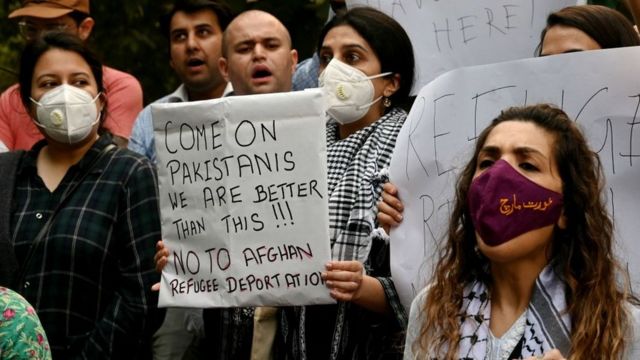 HERE!
COME ON
PAKISTANIS
WE ARE BETTER
THAN THIS!!!
NO TO AFGHAN
REFUGEE DEPORTATION
عورت مارچ